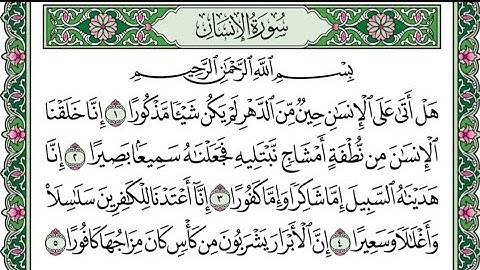 سُورَةُ الإِنسَان
بِسْمِ اللَّهِ الرَّحْمَٰنِ الرَّحِيمِ
هَلْ أَتَىٰ عَلَى ٱلْإِنسَٰنِ حِينٌ مِّنَ ٱلدَّهْرِ لَمْ يَكُن شَيْـًٔا مَّذْكُورًا ١ إِنَّا خَلَقْنَا
ٱلْإِنسَٰنَ مِن نُّطْفَةٍ أَمْشَاجٍ نَّبْتَلِيهِ فَجَعَلْنَٰهُ سَمِيعًۢا بَصِيرًا ٢ إِنَّا
هَدَيْنَٰهُ ٱلسَّبِيلَ إِمَّا شَاكِرًا وَإِمَّا كَفُورًا ٣ إِنَّآ أَعْتَدْنَا لِلْكَٰفِرِينَ سَلَٰسِلَا۟
وَأَغْلَٰلًا وَسَعِيرًا ٤ إِنَّ ٱلْأَبْرَارَ يَشْرَبُونَ مِن كَأْسٍ كَانَ مِزَاجُهَا كَافُورًا ٥